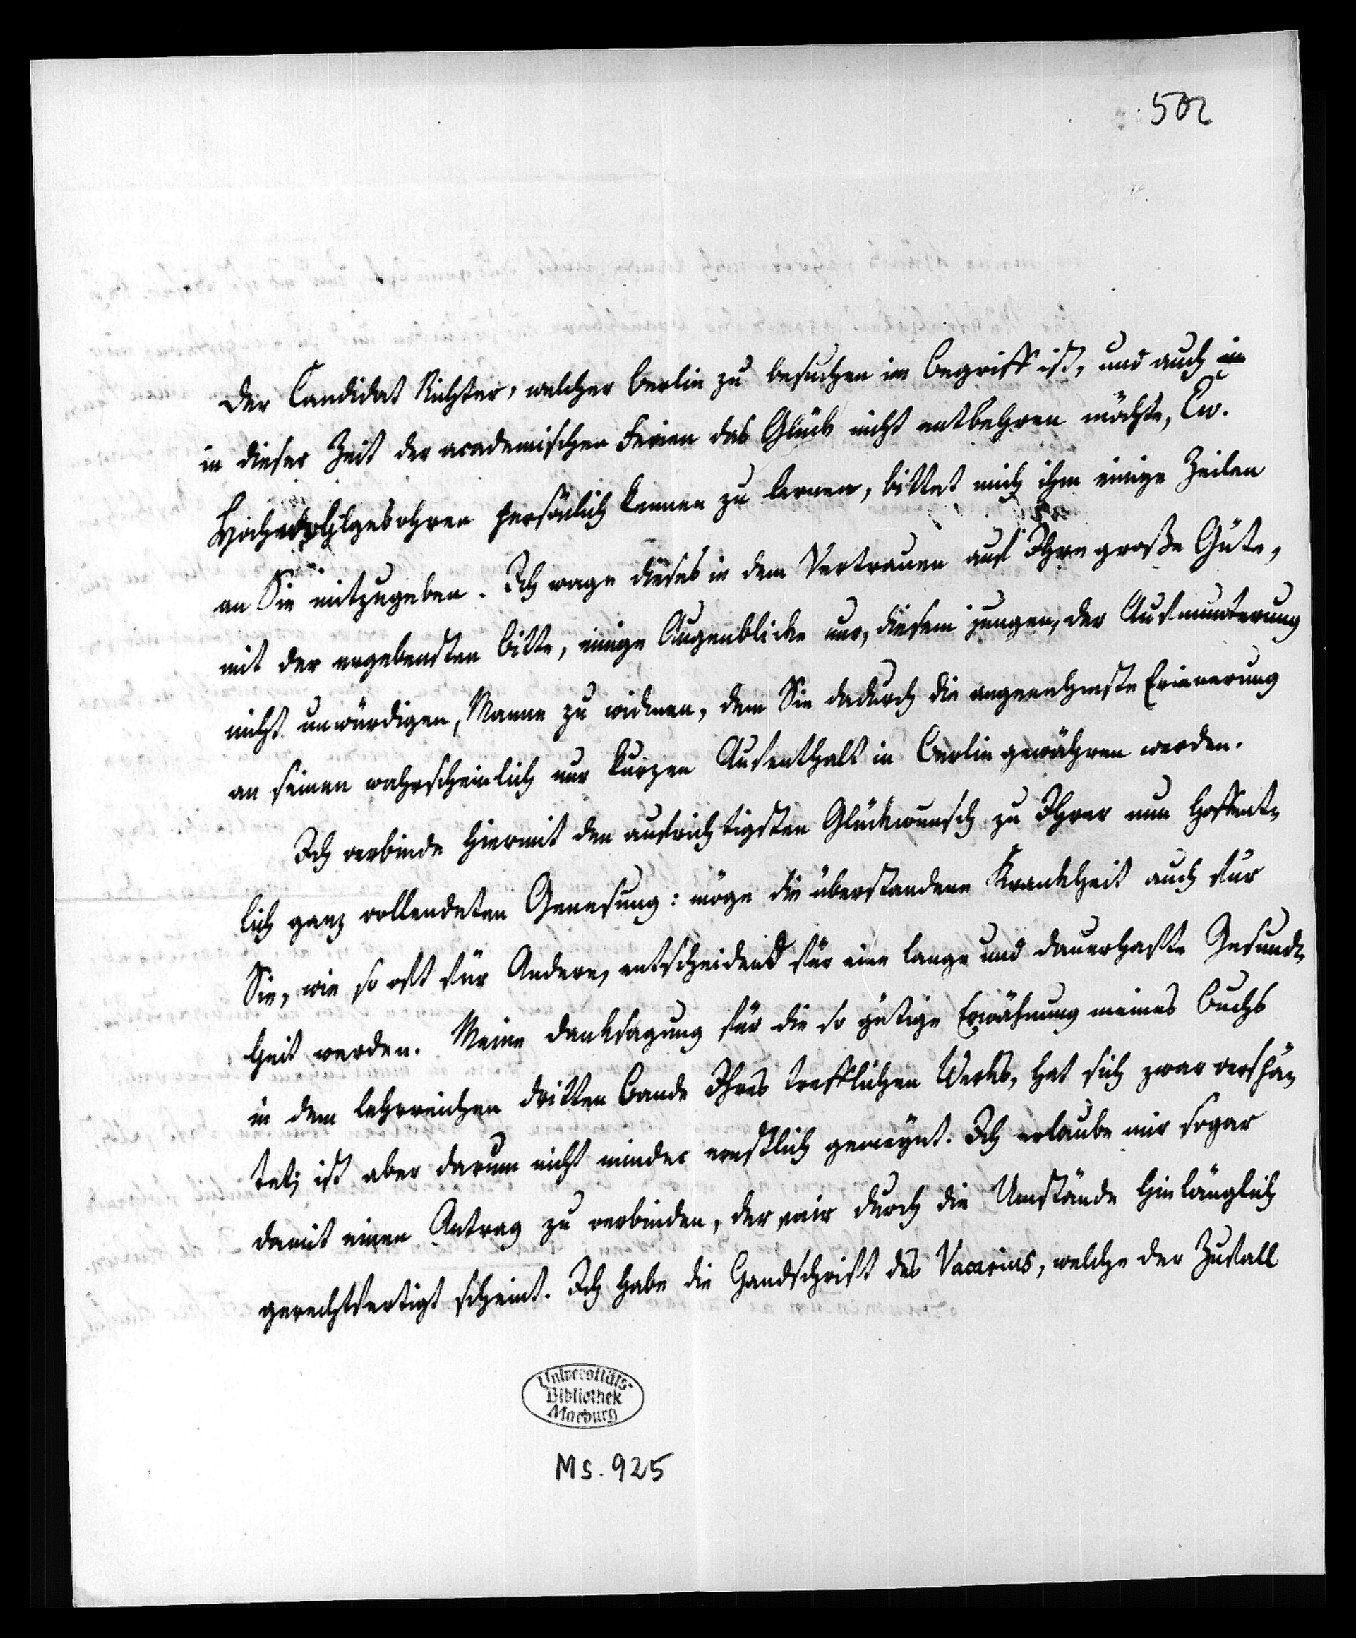 502
Der Candidat Richter, welcher Berlin zu besuchen im Begriff ist, und auch in
in dieser Zeit der academischen Ferien das Glück nicht entbehren möchte, Ew.
Hochwohlgebohren persönlich kennen zu lernen, bittet mich ihm einige Zeilen
an Sie mitzugeben. Ich wage dieses in dem Vertrauen auf Ihre große Güte,
mit der ergebensten Bitte, einige Augenblicke nur, diesem jungen, der Aufmunterung
nicht unwürdigen, Manne zu widmen, dem Sie dadurch die angenehmste Erinnerung
an seinen wahrscheinlich nur kurzen Aufenthalt in Berlin gewähren werden.
Ich verbinde hiermit den aufrichtigsten Glückwunsch zu Ihrer nun hoffent-
lich ganz vollendeten Genesung: möge die überstandene Krankheit auch für
Sie, wie so oft für Andere, entscheidend für eine lange und dauerhafte Gesund-
heit werden. Meine Danksagung für die so gütige Erwähnung meines Buchs
in dem lehrreichen dritten Bande Ihres trefflichen Werks, hat sich zwar verspä-
tet; ist aber darum nicht minder ernstlich gemeynt. Ich erlaube mir sogar
damit einen Antrag zu verbinden, der mir durch die Umstände hinlänglich
gerechtfertigt scheint. Ich habe die Handschrift des Vacarius, welche der Zufall
Universitäts-
Bibliothek
Marburg
Ms. 925